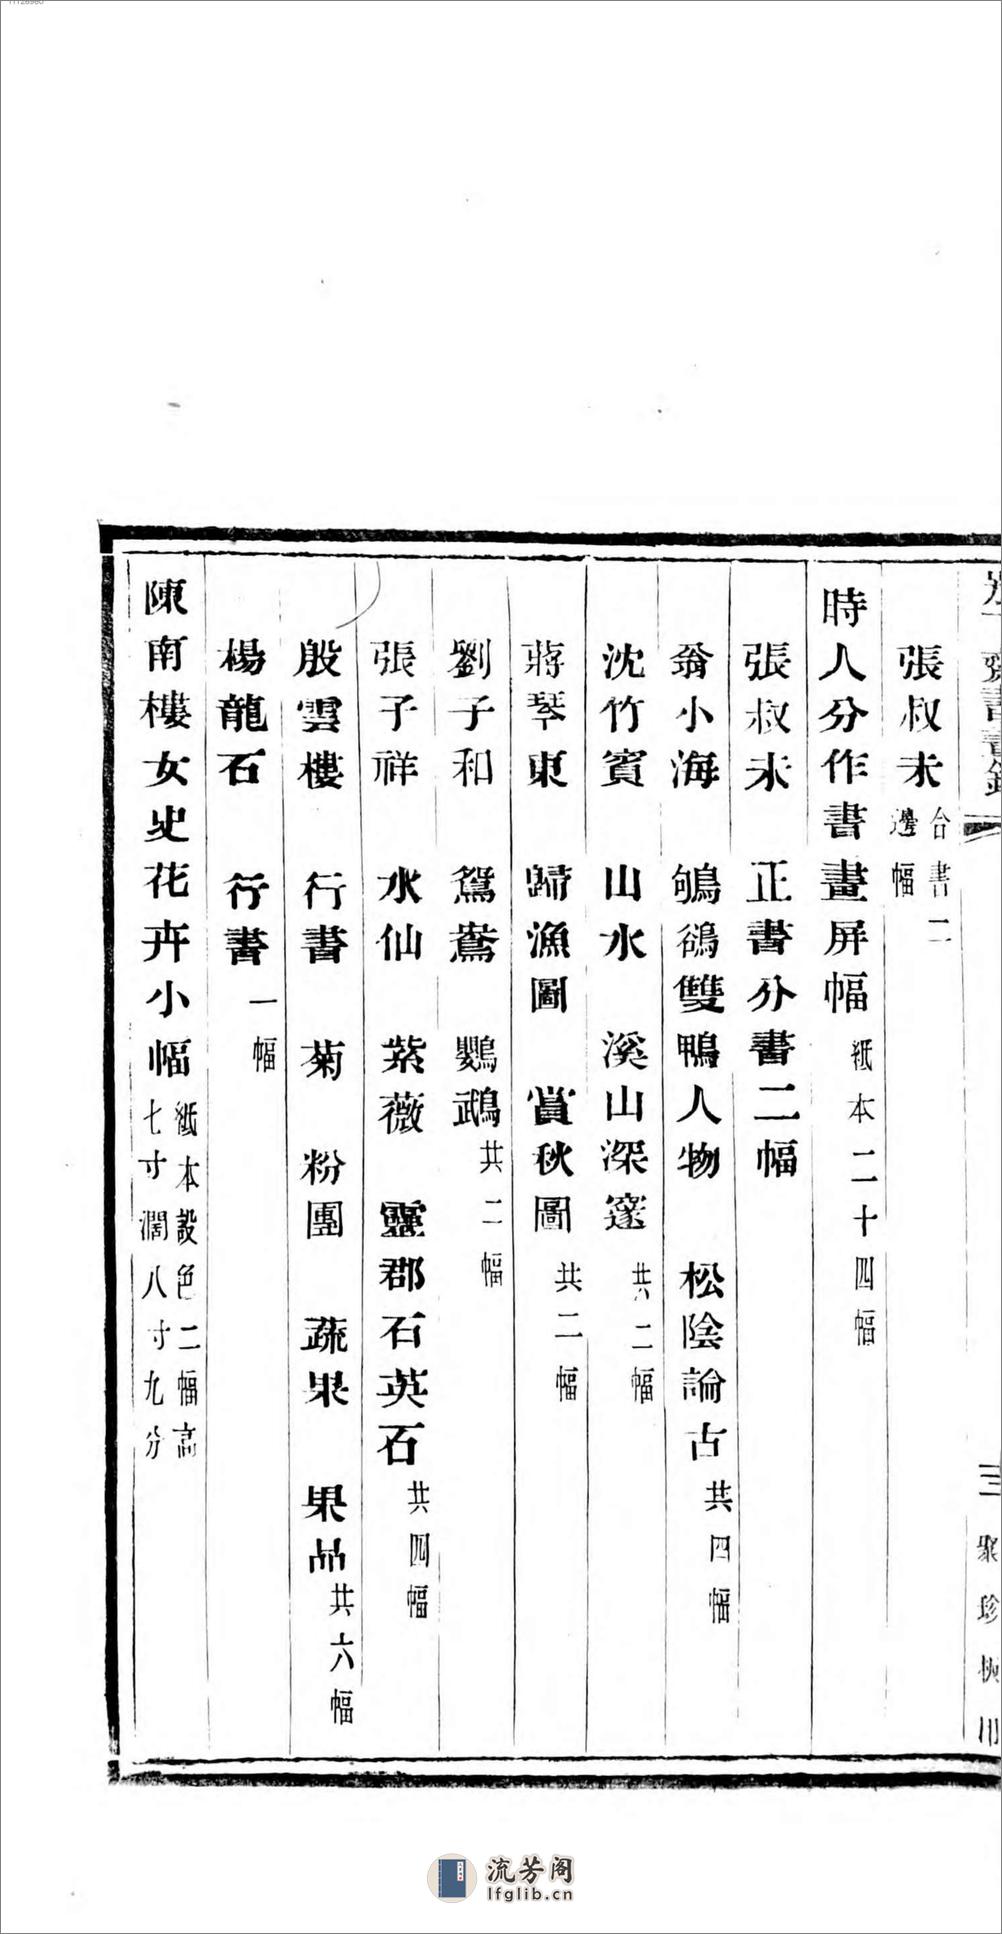 張叔未 合書二邊幅
時人分作書畫屏幅 紙本二十四幅
張叔未 正書分書二幅
翁小海 鴝鵒雙鴨人物 松陰論古 共四幅
沈竹賓 山水 溪山深邃 共二幅
蔣琴東 歸漁圖 賞秋圖 共二幅
劉子和 鴛鴦 鸚鵡 共二幅
張子祥 水仙 紫薇 靈郡石英石 共四幅
殷雲樓 行書 菊 粉團 蔬果 果品 共六幅
楊龍石 行書 一幅
陳南樓女史花卉小幅 紙本設色二幅高七寸濶八寸九分
三
聚珍
流芳阁
lfglib.cn